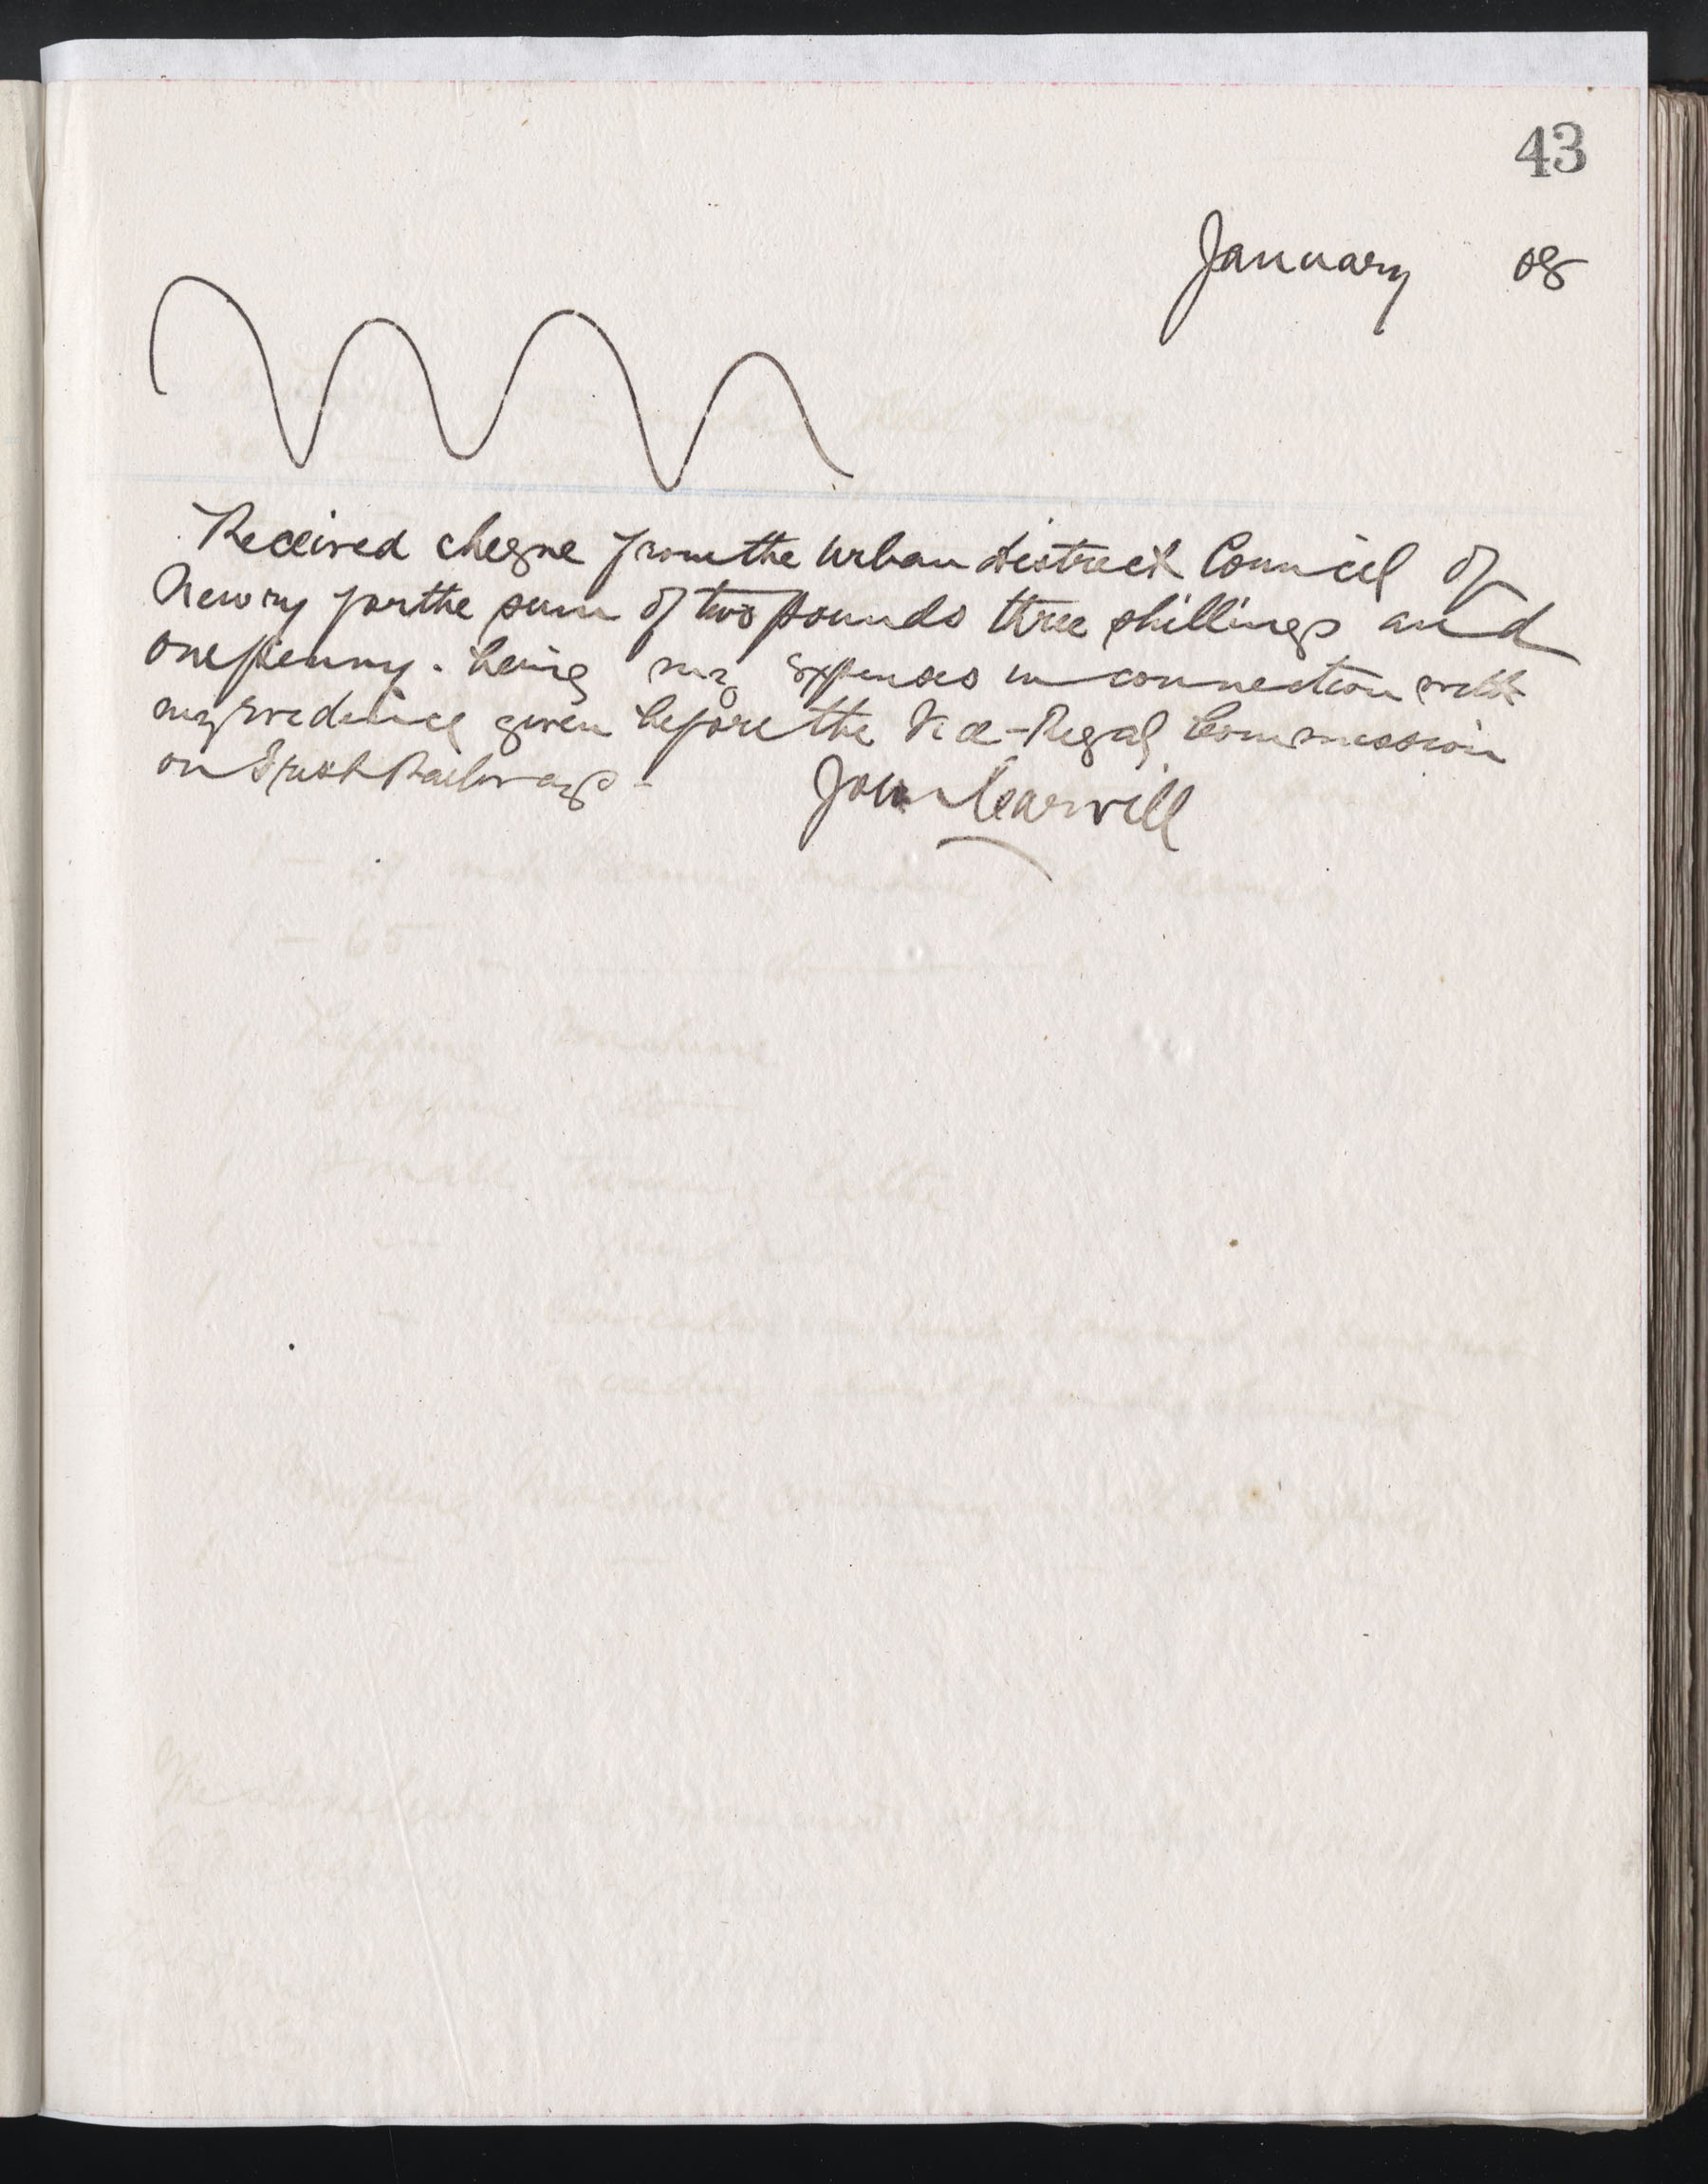 43
January 08
Received cheque from the Urban District Council of
Newry for the sum of two pounds three shillings and
one penny. being my expenses in connection with
my Evidence given before the Vice-Regal Commission
on Irish Railways -
John Carvill